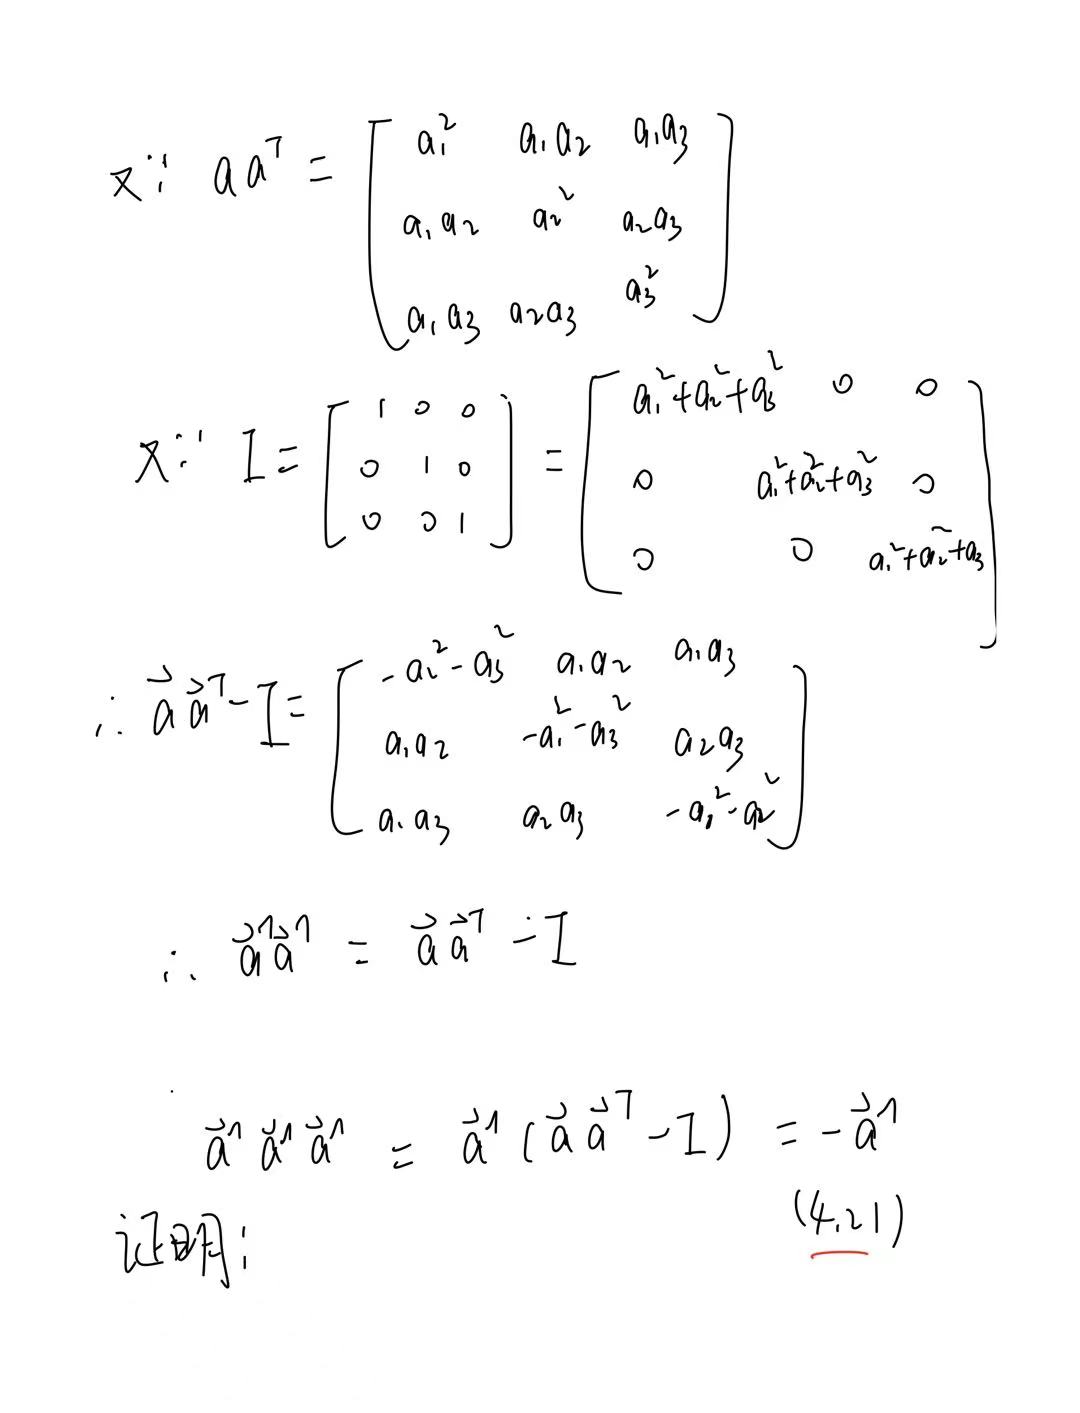 又∵ aaᵀ = [ a₁² a₁a₂ a₁a₃
a₁a₂ a₂² a₂a₃
a₁a₃ a₂a₃ a₃² ]
又∵ I = [ 1 0 0 = [ a₁²+a₂²+a₃² 0 0
0 1 0 0 a₁²+a₂²+a₃² 0
0 0 1 ] 0 0 a₁²+a₂²+a₃ ]
∴ a⃗a⃗ᵀ-I = [ -a₂²-a₃² a₁a₂ a₁a₃
a₁a₂ -a₁²-a₃² a₂a₃
a₁a₃ a₂a₃ -a₁²-a₂² ]
∴ a⃗^a⃗^ = a⃗a⃗ᵀ-I
a⃗^a⃗^a⃗^ = a⃗^(a⃗a⃗ᵀ-I) = -a⃗^
(4.21)
证明: